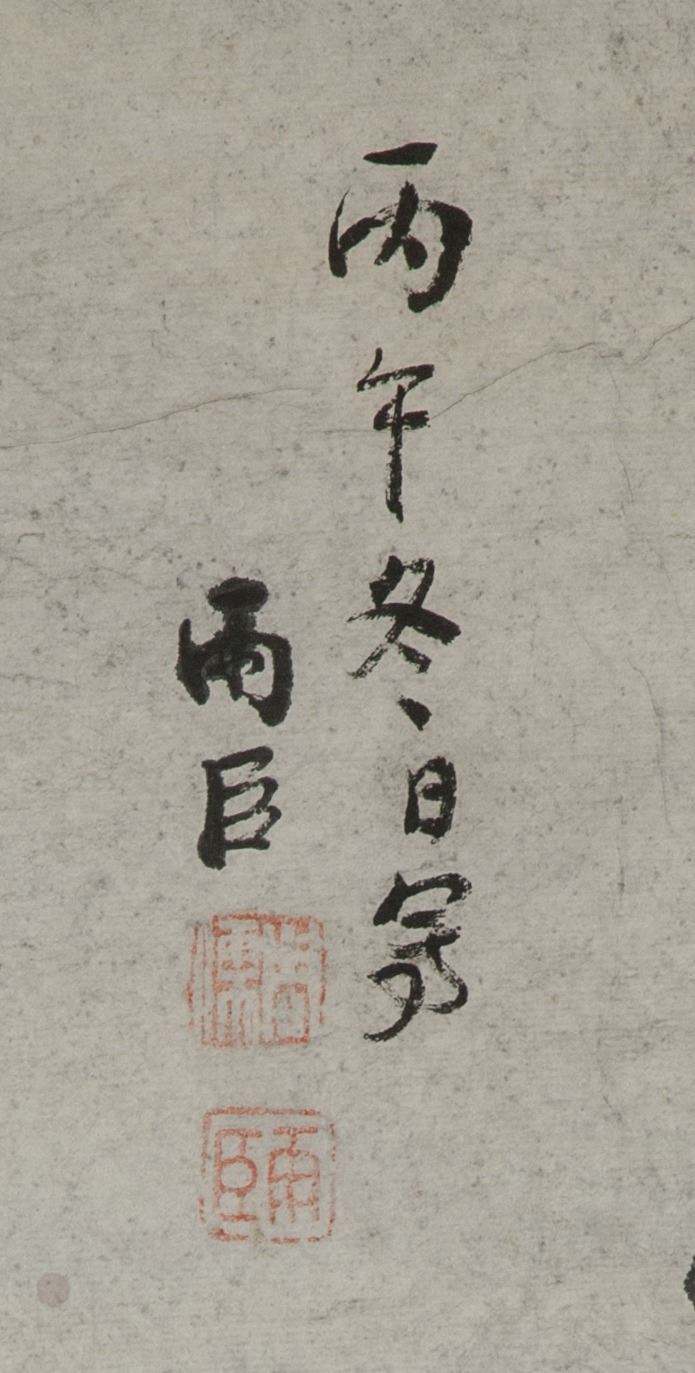 丙午冬日寫
雨臣
雨臣